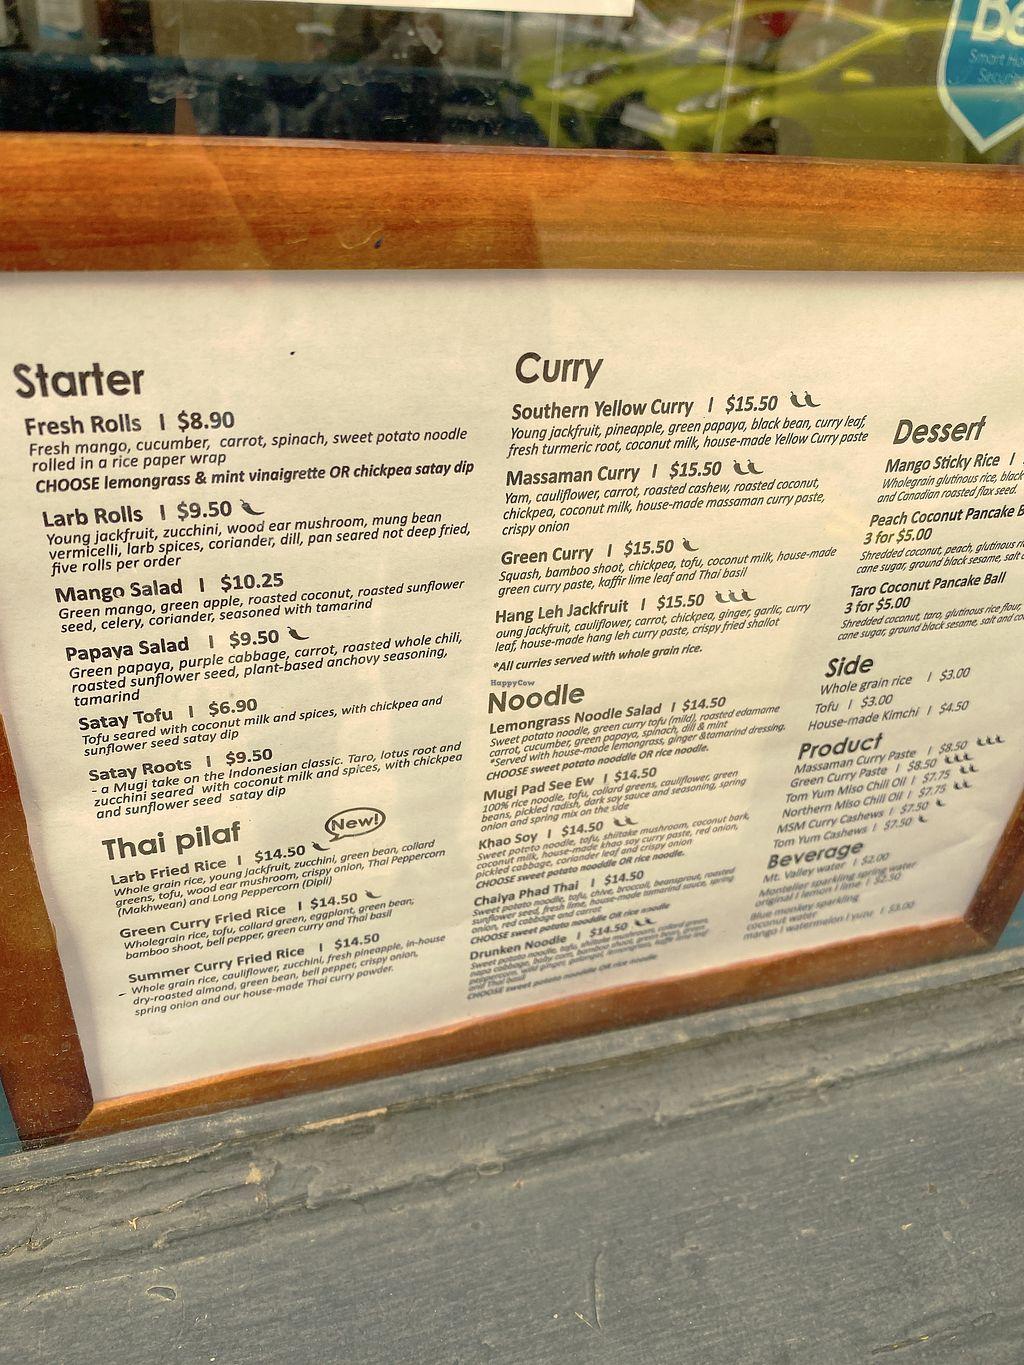 Be
Smart Ho
Starter
Fresh Rolls I $8.90
Fresh mango, cucumber, carrot, spinach, sweet potato noodle
rolled in a rice paper wrap
CHOOSE lemongrass & mint vinaigrette OR chickpea satay dip
Larb Rolls I $9.50
Young jackfruit, zucchini, wood ear mushroom, mung bean
vermicelli, larb spices, coriander, dill, pan seared not deep fried,
five rolls per order
Mango Salad I $10.25
Green mango, green apple, roasted coconut, roasted sunflower
seed, celery, coriander, seasoned with tamarind
Papaya Salad I $9.50
Green papaya, purple cabbage, carrot, roasted whole chili,
roasted sunflower seed, plant-based anchovy seasoning,
tamarind
Satay Tofu I $6.90
Tofu seared with coconut milk and spices, with chickpea and
sunflower seed satay dip
Satay Roots I $9.50
- a Mugi take on the Indonesian classic. Taro, lotus root and
zucchini seared with coconut milk and spices, with chickpea
and sunflower seed satay dip
Thai pilaf
New!
Larb Fried Rice I $14.50
Whole grain rice, young jackfruit, zucchini, green bean, collard
greens, tofu, wood ear mushroom, crispy onion, Thai Peppercorn
(Makhwean) and Long Peppercorn (Dipli)
Green Curry Fried Rice I $14.50
Wholegrain rice, tofu, collard green, eggplant, green bean,
bamboo shoot, bell pepper, green curry and Thai basil
Summer Curry Fried Rice I $14.50
- Whole grain rice, cauliflower, zucchini, fresh pineapple, in-house
dry-roasted almond, green bean, bell pepper, crispy onion,
spring onion and our house-made Thai curry powder.
Curry
Southern Yellow Curry I $15.50
Young jackfruit, pineapple, green papaya, black bean, curry leaf,
fresh turmeric root, coconut milk, house-made Yellow Curry paste
Massaman Curry I $15.50
Yam, cauliflower, carrot, roasted cashew, roasted coconut,
chickpea, coconut milk, house-made massaman curry paste,
crispy onion
Green Curry I $15.50
Squash, bamboo shoot, chickpea, tofu, coconut milk, house-made
green curry paste, kaffir lime leaf and Thai basil
Hang Leh Jackfruit I $15.50
oung jackfruit, cauliflower, carrot, chickpea, ginger, garlic, curry
leaf, house-made hang leh curry paste, crispy fried shallot
*All curries served with whole grain rice.
HappyCow
Noodle
Lemongrass Noodle Salad I $14.50
Sweet potato noodle, green curry tofu (mild), roasted edamame
carrot, cucumber, green papaya, spinach, dill & mint
*Served with house-made lemongrass, ginger &tamarind dressing.
CHOOSE sweet potato noodle OR rice noodle.
Mugi Pad See Ew I $14.50
100% rice noodle, tofu, collard greens, cauliflower, green
beans, pickled radish, dark soy sauce and seasoning, spring
onion and spring mix on the side
Khao Soy I $14.50
Sweet potato noodle, tofu, shiitake mushroom, coconut bark,
coconut milk, house-made khao soy curry paste, red onion,
pickled cabbage, coriander leaf and crispy onion
CHOOSE sweet potato nooddle OR rice noodle.
Chaiya Phad Thai I $14.50
Sweet potato noodle, tofu, chive, broccoli, beansprout, roasted
sunflower seed, fresh lime, house-made tamarind sauce, spring
onion, red cabbage and carrot
CHOOSE sweet potato nooddle OR rice noodle
Drunken Noodle I $14.50
Sweet potato noodle, tofu, shiitake mushroom, collard green,
napa cabbage, baby corn, bamboo shoot, green bean, green
peppercorn, wild ginger, kaffir lime leaf
and Thai basil
CHOOSE sweet potato nooddle OR rice noodle
Dessert
Mango Sticky Rice I
Wholegrain glutinous rice, black
and Canadian roasted flax seed.
Peach Coconut Pancake B
3 for $5.00
Shredded coconut, peach, glutinous
cane sugar, ground black sesame, salt
Taro Coconut Pancake Ball
3 for $5.00
Shredded coconut, taro, glutinous rice flour,
cane sugar, ground black sesame, salt and
Side
Whole grain rice I $3.00
Tofu I $3.00
House-made Kimchi I $4.50
Product
Massaman Curry Paste I $8.50
Green Curry Paste I $8.50
Tom Yum Miso Chili Oil I $7.75
Northern Miso Chili Oil I $7.75
MSM Curry Cashews I $7.50
Tom Yum Cashews I $7.50
Beverage
Mt. Valley water I $2.00
Montellier sparkling spring water
original I lemon I lime I $2.50
Blue monkey sparkling
coconut water
mango I watermelon I yuzu I $3.00